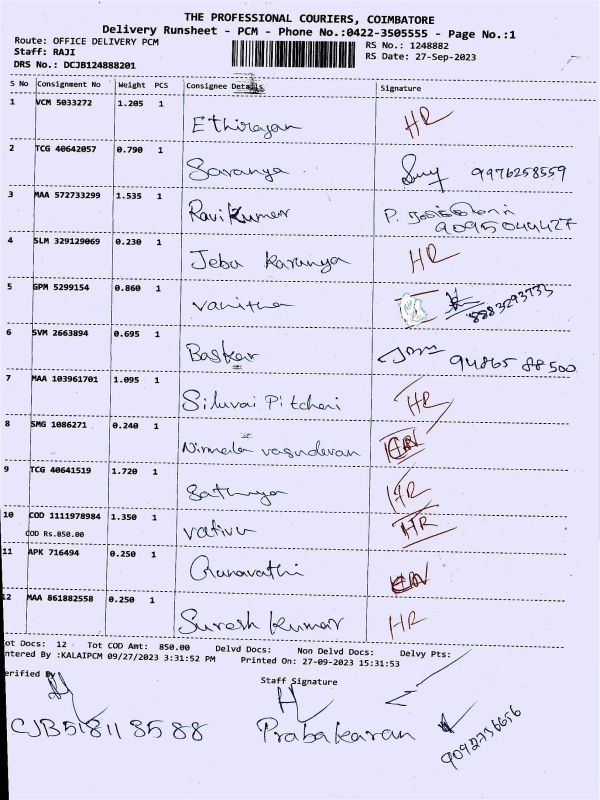 THE PROFESSIONAL COURIERS, COIMBATORE
Delivery Runsheet - PCM - Phone No.:0422-3505555 - Page No.:1
Route: OFFICE DELIVERY PCM
RS No.: 1248882
Staff: RAJI
RS Date: 27-Sep-2023
DRS No.: DCJB124888201
S No Consignment No Weight PCS Consignee Details Signature
1 VCM 5033272 1.205 1 Ethirajan HR
2 TCG 40642057 0.790 1 Saranya 9976258559
3 MAA 572733299 1.535 1 Ravikumar P.
9095044427
4 SLM 329129069 0.230 1 Jeba Karunya HR
5 GPM 5299154 0.860 1 Vanitha 8883293733
6 SVM 2663894 0.695 1 Baskar 94865 88500
7 MAA 103961701 1.095 1 Siluvai Pitchai HR
8 SMG 1086271 0.240 1 Nirmala vasudevan
9 TCG 40641519 1.720 1 Sathya HR
10 COD 1111978984 1.350 1 HR
COD Rs.850.00
11 APK 716494 0.250 1 Gunavathi
12 MAA 861882558 0.250 1 Suresh Kumar HR
ot Docs: 12 Tot COD Amt: 850.00 Delvd Docs: Non Delvd Docs: Delvy Pts:
ntered By :KALAIPCM 09/27/2023 3:31:52 PM Printed On: 27-09-2023 15:31:53
erified By Staff Signature
CJB518118588 Prabakaran 9092756656